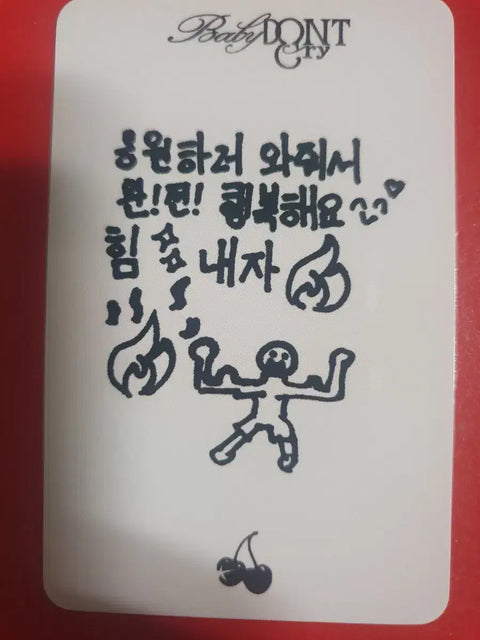 Baby DONT Cry
응원하러 와줘서
완!전! 행복해요
힘 내자